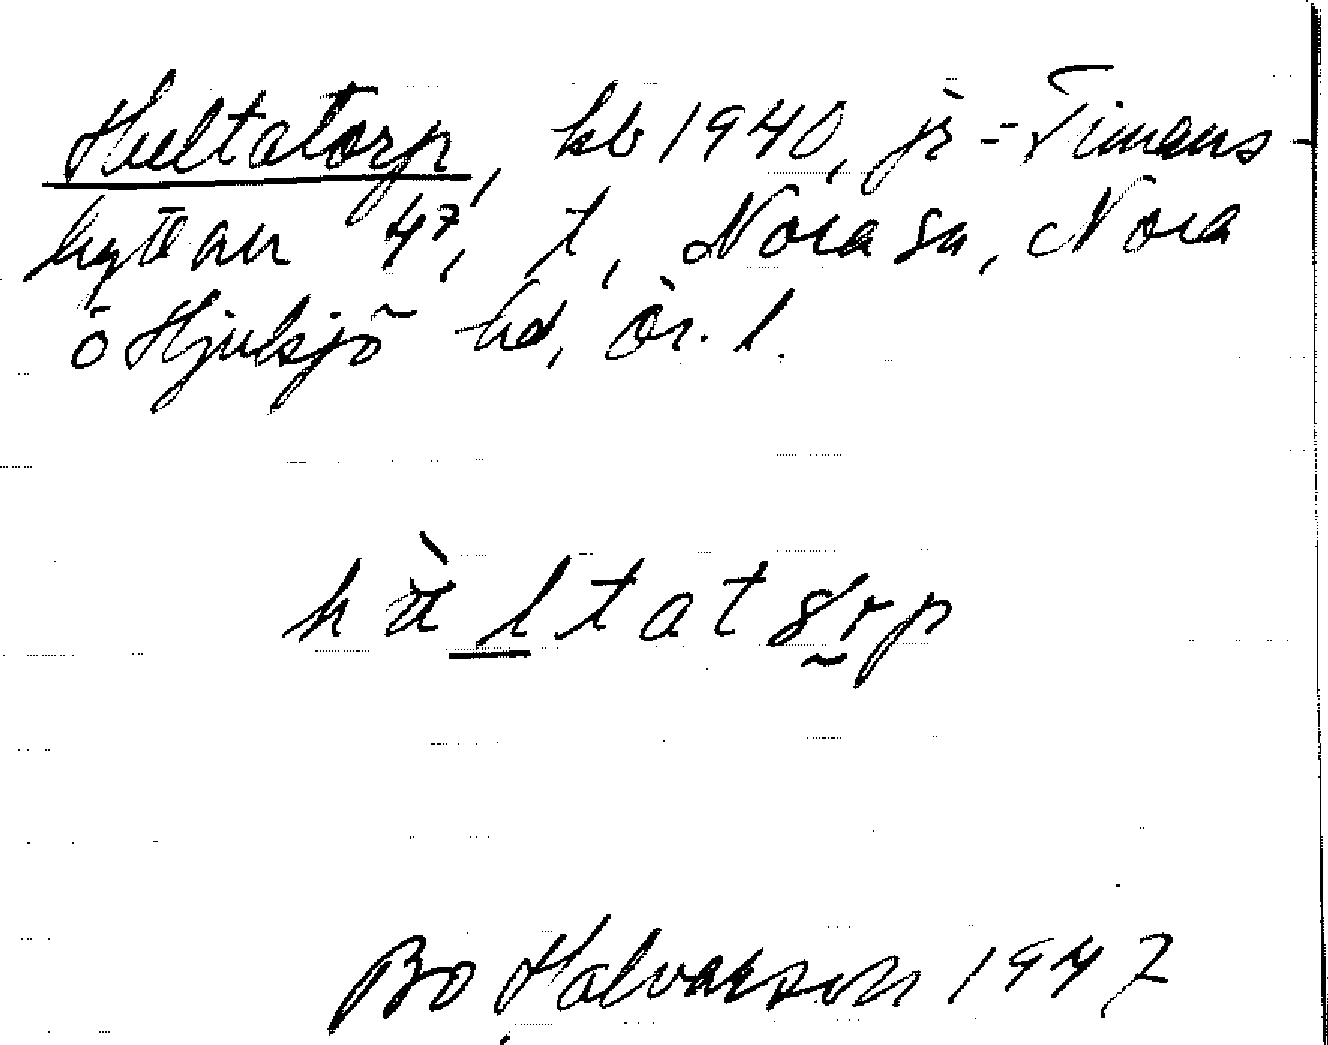 Hultatorp, kb 1940, jr = Timans-
hyttan 4⁷, t, Nora sn, Nora
o Hjulsjö hd, Ör. l.
hu̇̀ltatorp
Bo Halvarson 1947